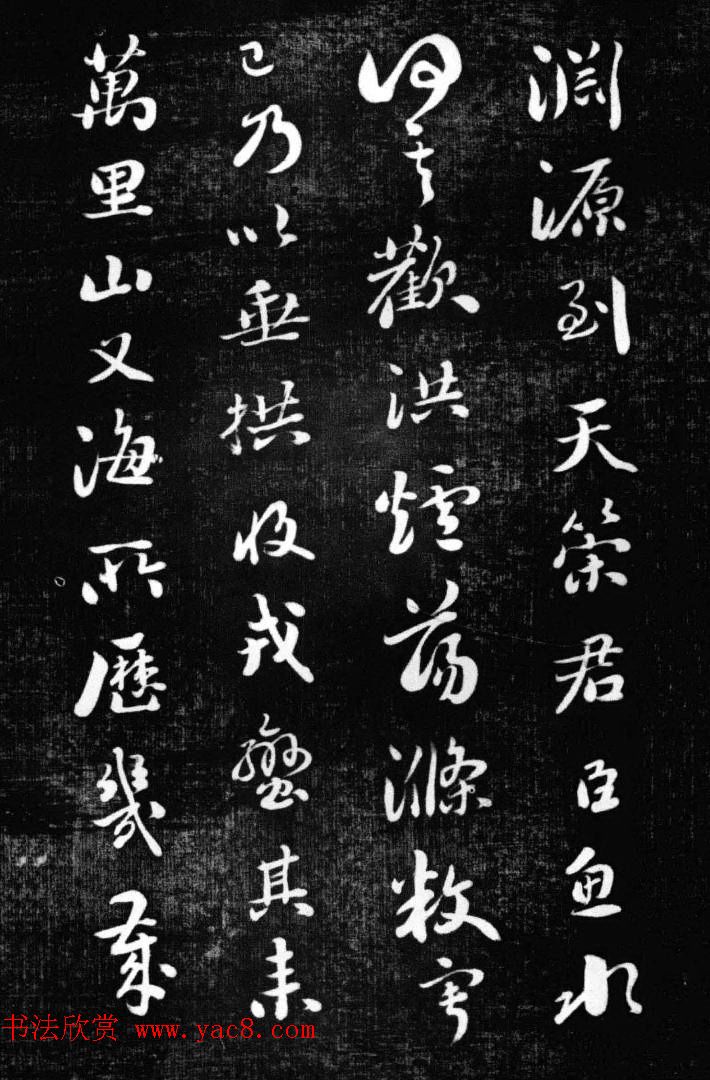 淵源到天策君臣魚水
何其歡洪爐蕩滌敉寧
已乃以垂拱收戎蠻其来
萬里山又海所歷幾歲
书法欣赏 www.yac8.com